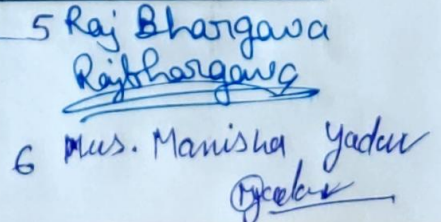 5 Raj Bhargava
Rajbhargava
6 Mrs. Manisha Yadav
MYadav